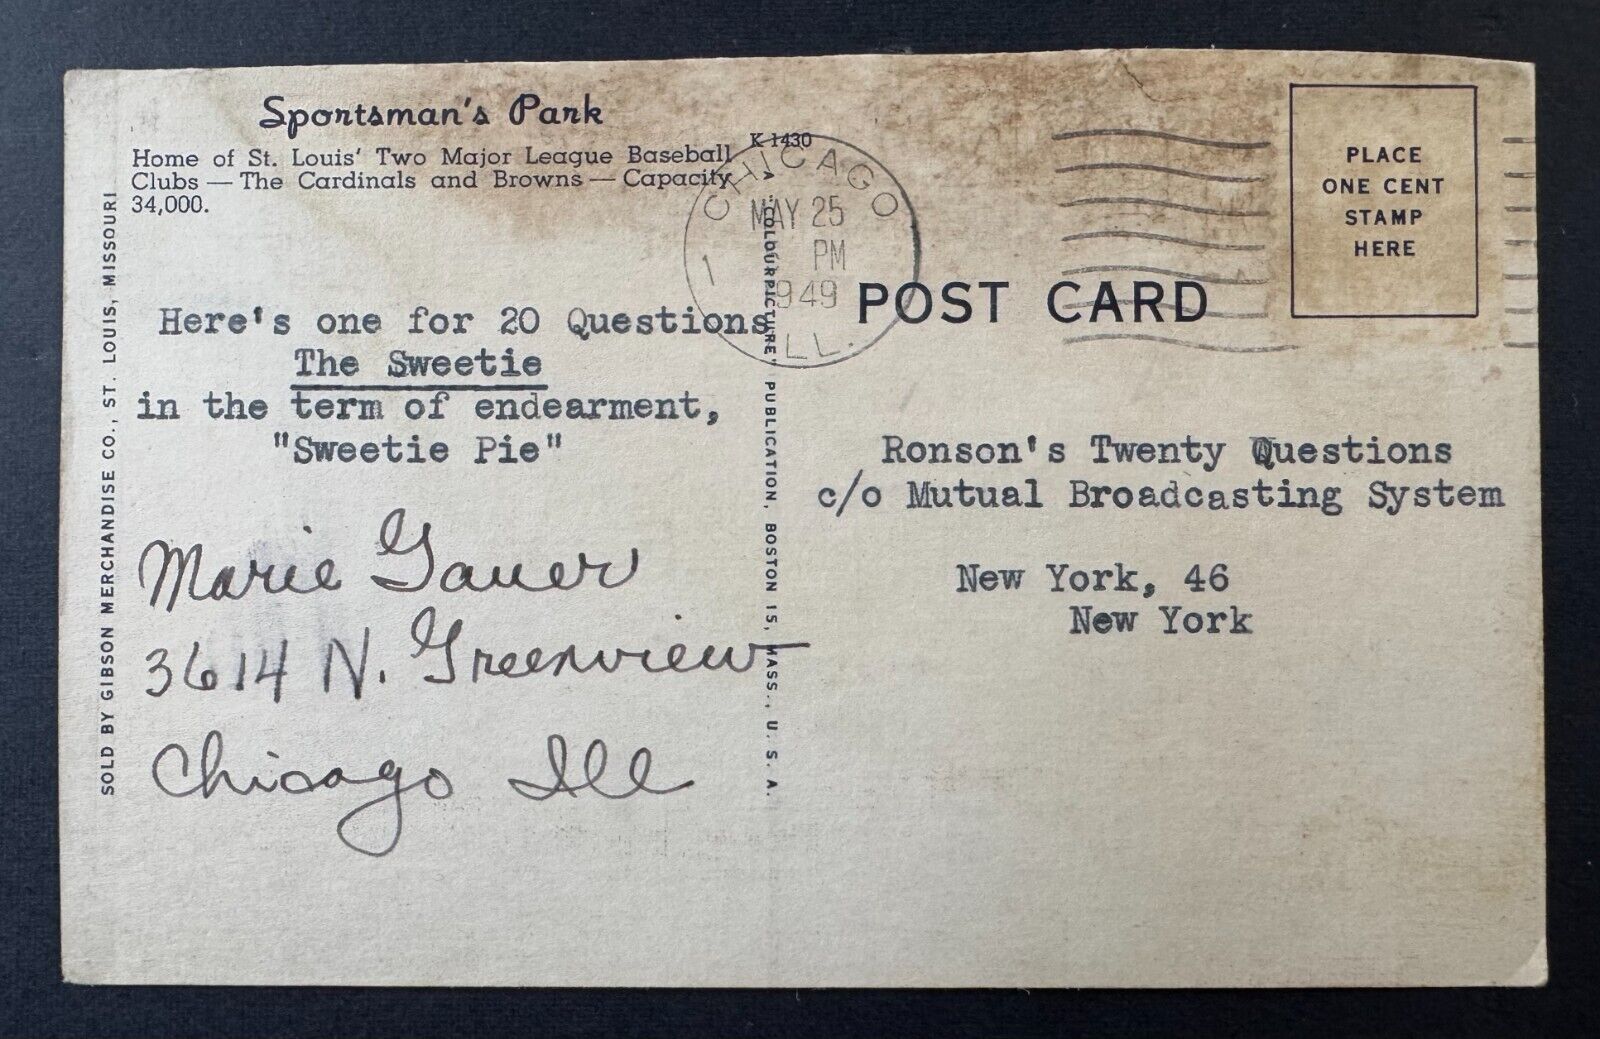 Sportsman's Park
Home of St. Louis' Two Major League Baseball
Clubs — The Cardinals and Browns — Capacity
34,000.
K 1430
CHICAGO
1
MAY 25
PM
1949
ILL.
PLACE
ONE CENT
STAMP
HERE
POST CARD
SOLD BY GIBSON MERCHANDISE CO., ST. LOUIS, MISSOURI
A "COLOURPICTURE" PUBLICATION, BOSTON 15, MASS., U. S. A.
Here's one for 20 Questions
The Sweetie
in the term of endearment,
"Sweetie Pie"
Marie Gauer
3614 N. Greenview
Chicago Ill
Ronson's Twenty Questions
c/o Mutual Broadcasting System
New York, 46
New York